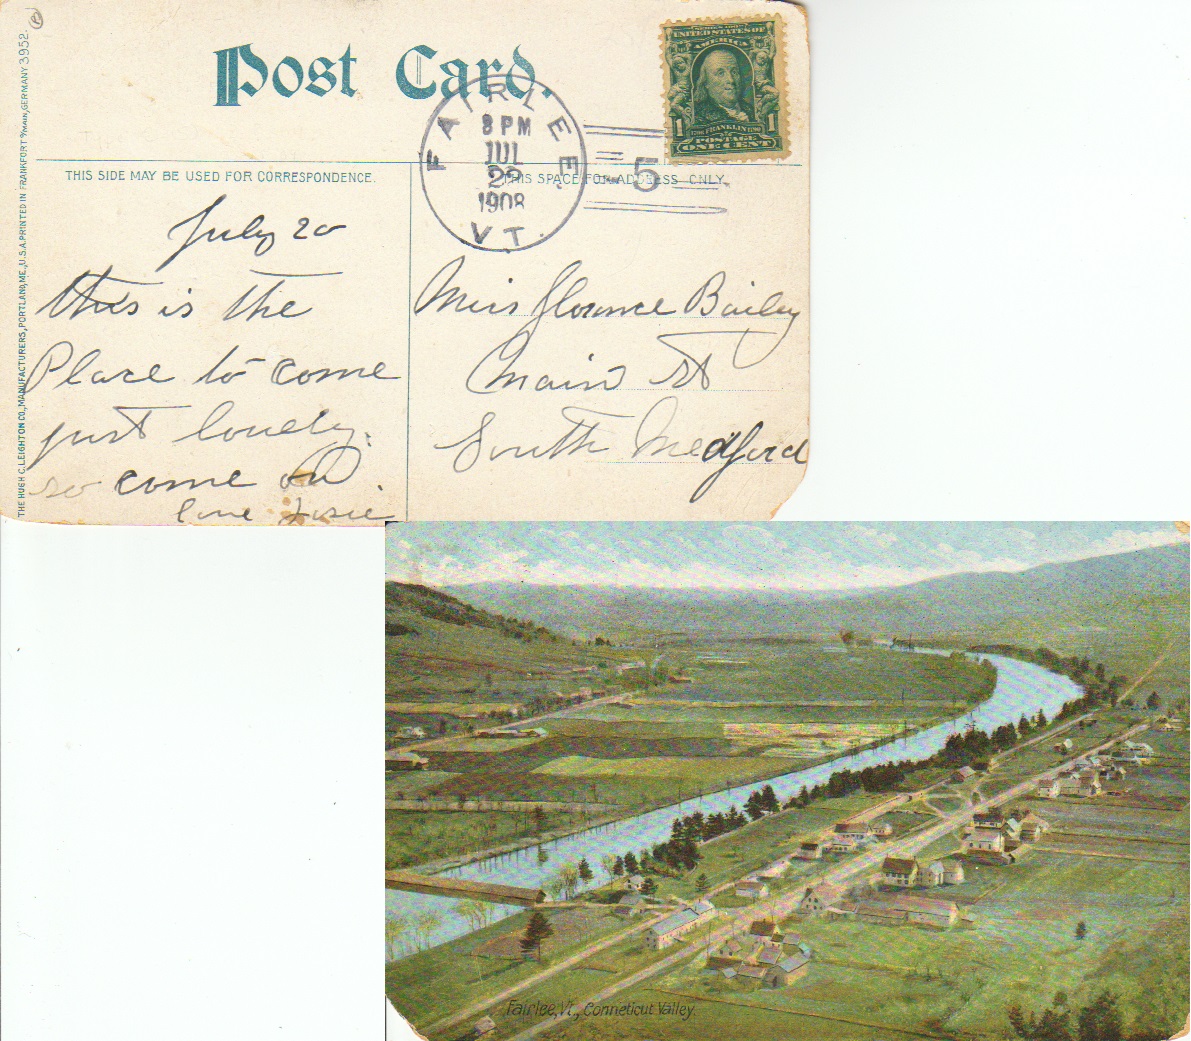 THE HUGH C. LEIGHTON CO., MANUFACTURERS, PORTLAND, ME., U.S.A. PRINTED IN FRANKFORT o/MAIN, GERMANY 3952.
Post Card.
UNITED STATES OF
AMERICA
1706 FRANKLIN 1790
1 POSTAGE 1
ONE CENT
FAIRLEE
8 PM
JUL
1908
VT.
5
THIS SIDE MAY BE USED FOR CORRESPONDENCE.
THIS SPACE FOR ADDRESS ONLY.
July 20
this is the
Place to come
just lovely.
so come on.
Love Josie
Miss Florence Bailey
Main St
South Medford
Fairlee, Vt., Conneticut Valley.